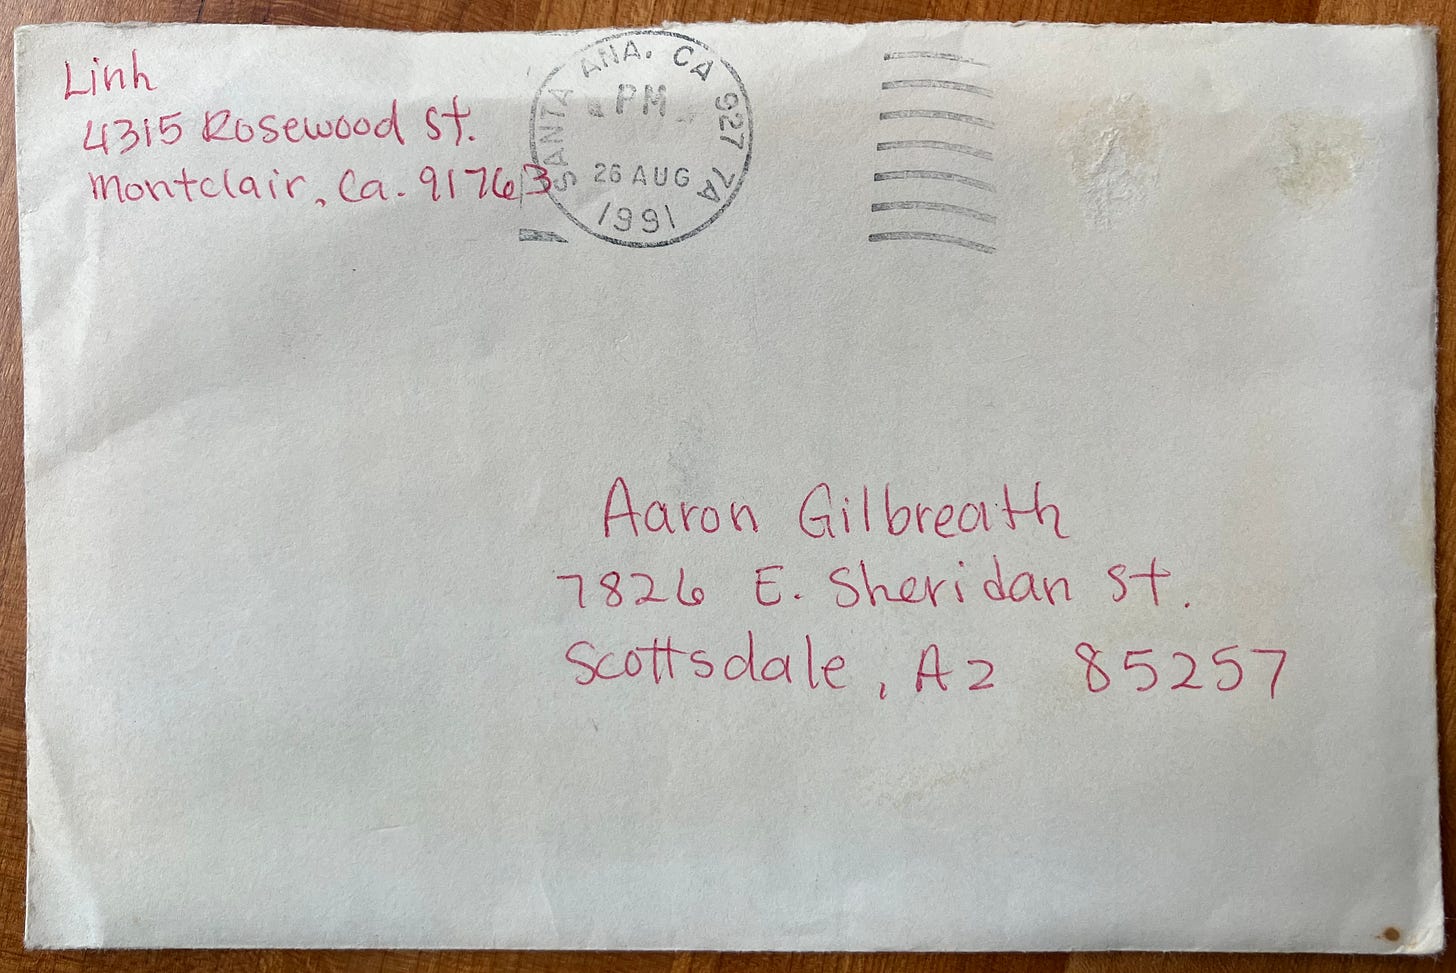 Linh
4315 Rosewood St.
Montclair, Ca. 91763
SANTA ANA. CA 927 7A
PM
26 AUG
1991
Aaron Gilbreath
7826 E. Sheridan St.
Scottsdale, AZ 85257